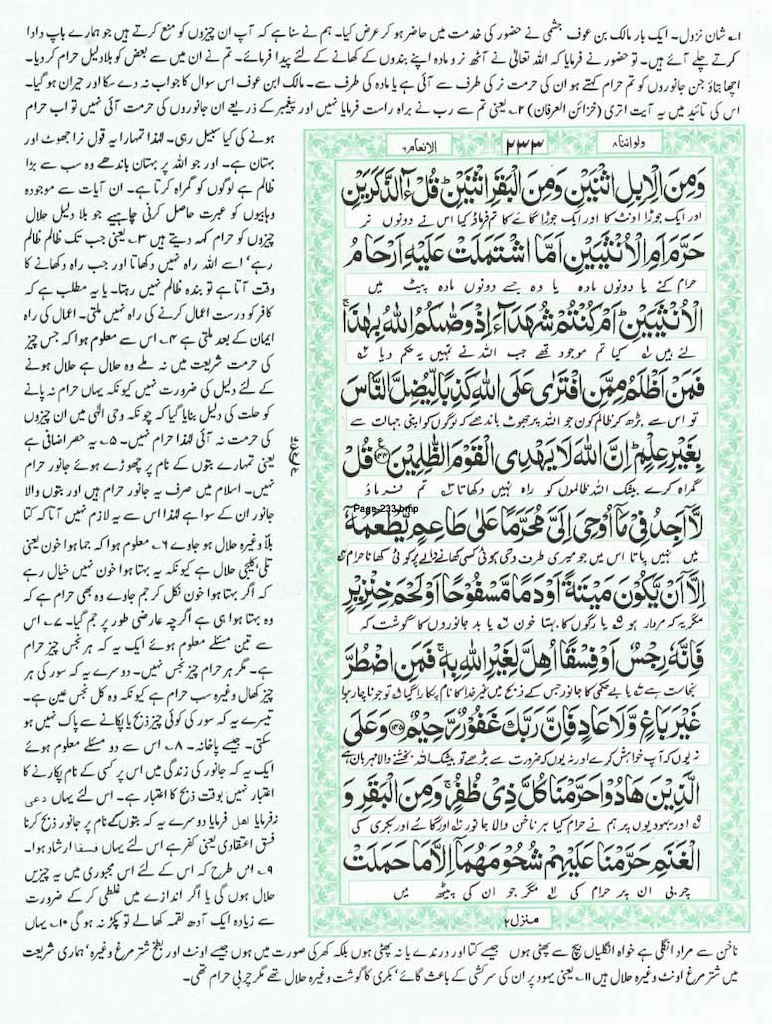 ۱؎ شان نزول۔ ایک بار مالک بن عوف جشمی نے حضور کی خدمت میں حاضر ہو کر عرض کیا۔ ہم نے سنا ہے کہ آپ ان چیزوں کو منع کرتے ہیں جو ہمارے باپ دادا
کرتے چلے آئے ہیں۔ تو حضور نے فرمایا کہ اللہ تعالیٰ نے آٹھ نر و مادہ اپنے بندوں کے کھانے کے لئے پیدا فرمائے۔ تم نے ان میں سے بعض کو بلا دلیل حرام کر دیا۔
اچھا بتاؤ جن جانوروں کو تم حرام کہتے ہو ان کی حرمت نر کی طرف سے آئی ہے یا مادہ کی طرف سے۔ مالک ابن عوف اس سوال کا جواب نہ دے سکا اور حیران ہو گیا۔
اس کی تائید میں یہ آیت اتری (خزائن العرفان) ۲؎ یعنی تم سے رب نے براہ راست فرمایا نہیں اور پیغمبر کے ذریعے ان جانوروں کی حرمت آئی نہیں تو اب حرام
ہونے کی کیا سبیل رہی۔ لہٰذا تمہارا یہ قول نرا جھوٹ اور
بہتان ہے۔ اور جو اللہ پر بہتان باندھے وہ سب سے بڑا
ظالم ہے لوگوں کو گمراہ کرتا ہے۔ ان آیات سے موجودہ
وہابیوں کو عبرت حاصل کرنی چاہیے جو بلا دلیل حلال
چیزوں کو حرام کہہ دیتے ہیں ۳؎ یعنی جب تک ظالم ظالم
رہے، اسے اللہ راہ نہیں دکھاتا اور جب راہ دکھانے کا
وقت آتا ہے تو بندہ ظالم نہیں رہتا۔ یا یہ مطلب ہے کہ
کافر کو درست اعمال کرنے کی راہ نہیں ملتی۔ اعمال کی راہ
ایمان کے بعد ملتی ہے ۴؎ اس سے معلوم ہوا کہ جس چیز
کی حرمت شریعت میں نہ ملے وہ حلال ہے حلال ہونے
کے لئے دلیل کی ضرورت نہیں کیونکہ یہاں حرام نہ پانے
کو حلت کی دلیل بنایا گیا کہ چونکہ وحی الٰہی میں ان چیزوں
کی حرمت نہ آئی لہٰذا حرام نہیں۔ ۵؎ یہ حصر اضافی ہے
یعنی تمہارے بتوں کے نام پر چھوڑے ہوئے جانور حرام
نہیں۔ اسلام میں صرف یہ جانور حرام ہیں اور بتوں والا
جانور ان کے سوا ہے لہٰذا اس سے یہ لازم نہیں آتا کہ کتا
بلا وغیرہ حلال ہو جاوے ۶؎ معلوم ہوا کہ جما ہوا خون یعنی
تلی، کلیجی حلال ہے کیونکہ یہ بہتا ہوا خون نہیں خیال رہے
کہ اگر بہتا ہوا خون نکل کر جم جاوے وہ بھی حرام ہے کہ
وہ بہتا ہوا ہی ہے اگرچہ عارضی طور پر جم گیا۔ ۷؎ اس
سے تین مسئلے معلوم ہوئے ایک یہ کہ ہر نجس چیز حرام
ہے۔ مگر ہر حرام چیز نجس نہیں۔ دوسرے یہ کہ سور کی ہر
چیز کھال وغیرہ سب حرام ہے کیونکہ وہ کل نجس عین ہے۔
تیسرے یہ کہ سور کی کوئی چیز ذبح یا پکانے سے پاک نہیں ہو
سکتی۔ جیسے پاخانہ۔ ۸؎ اس سے دو مسئلے معلوم ہوئے
ایک یہ کہ جانور کی زندگی میں اس پر کسی کے نام پکارنے کا
اعتبار نہیں بوقت ذبح کا اعتبار ہے۔ اس لئے یہاں دعی
نہ فرمایا اھل فرمایا دوسرے یہ کہ بتوں کے نام پر جانور ذبح کرنا
فسق اعتقادی یعنی کفر ہے اس لئے یہاں فسقا ارشاد ہوا۔
۹؎ اس طرح کہ اس کے لئے اس مجبوری میں یہ چیزیں
حلال ہوں گی یا اگر اندازے میں غلطی کر کے ضرورت
سے زیادہ ایک آدھ لقمہ کھا لے تو پکڑ نہ ہو گی ۱۰؎ یہاں
ناخن سے مراد انگلی ہے خواہ انگلیاں بیچ سے پھٹی ہوں جیسے کتا اور درندے یا نہ پھٹی ہوں بلکہ کھر کی صورت میں ہوں جیسے اونٹ اور بطخ شتر مرغ وغیرہ، ہماری شریعت
میں شتر مرغ اونٹ وغیرہ حلال ہیں ۱۱؎ یعنی یہود پر ان کی سرکشی کے باعث گائے، بکری کا گوشت وغیرہ حلال تھے مگر چربی حرام تھی۔
ولواننا ۸
۲۳۳
الانعام ۶
وَمِنَ الْاِبِلِ اثْنَيْنِ وَمِنَ الْبَقَرِ اثْنَيْنِ ؕ قُلْ ءٰٓالذَّكَرَيْنِ
اور ایک جوڑا اونٹ کا اور ایک جوڑا گائے کا تم فرماؤ کیا اس نے دونوں نر
حَرَّمَ اَمِ الْاُنْثَيَيْنِ اَمَّا اشْتَمَلَتْ عَلَيْهِ اَرْحَامُ
حرام کئے یا دونوں مادہ یا وہ جسے دونوں مادہ پیٹ میں
الْاُنْثَيَيْنِ ؕ اَمْ كُنْتُمْ شُهَدَآءَ اِذْ وَصّٰىكُمُ اللّٰهُ بِهٰذَا ۚ
لئے ہیں کیا تم موجود تھے جب اللہ نے تمہیں یہ حکم دیا
فَمَنْ اَظْلَمُ مِمَّنِ افْتَرٰى عَلَى اللّٰهِ كَذِبًا لِّيُضِلَّ النَّاسَ
تو اس سے بڑھ کر ظالم کون جو اللہ پر جھوٹ باندھے کہ لوگوں کو اپنی جہالت سے
بِغَيْرِ عِلْمٍ ؕ اِنَّ اللّٰهَ لَا يَهْدِى الْقَوْمَ الظّٰلِمِيْنَ قُلْ
گمراہ کرے بیشک اللہ ظالموں کو راہ نہیں دکھاتا تم فرماؤ
Page-233.bmp
لَّآ اَجِدُ فِىْ مَآ اُوْحِىَ اِلَىَّ مُحَرَّمًا عَلٰى طَاعِمٍ يَّطْعَمُهٗٓ
میں نہیں پاتا اس میں جو میری طرف وحی ہوئی کسی کھانے والے پر کوئی کھانا حرام
اِلَّآ اَنْ يَّكُوْنَ مَيْتَةً اَوْ دَمًا مَّسْفُوْحًا اَوْ لَحْمَ خِنْزِيْرٍ
مگر یہ کہ مردار ہو یا رگوں کا بہتا خون یا بد جانوروں کا گوشت کہ
فَاِنَّهٗ رِجْسٌ اَوْ فِسْقًا اُهِلَّ لِغَيْرِ اللّٰهِ بِهٖ ۚ فَمَنِ اضْطُرَّ
نجاست ہے یا بے حکمی کا جانور جس کے ذبح میں غیر خدا کا نام پکارا گیا تو جو ناچار ہوا
غَيْرَ بَاغٍ وَّلَا عَادٍ فَاِنَّ رَبَّكَ غَفُوْرٌ رَّحِيْمٌ ﴿۱۴۵﴾ وَعَلَى
نہ یوں کہ آپ خواہش کرے اور نہ یوں کہ ضرورت سے بڑھے تو بیشک اللہ بخشنے والا مہربان ہے
الَّذِيْنَ هَادُوْا حَرَّمْنَا كُلَّ ذِىْ ظُفُرٍ ۚ وَمِنَ الْبَقَرِ وَ
اور یہودیوں پر ہم نے حرام کیا ہر ناخن والا جانور اور گائے اور بکری کی
الْغَنَمِ حَرَّمْنَا عَلَيْهِمْ شُحُوْمَهُمَآ اِلَّا مَا حَمَلَتْ
چربی ان پر حرام کی مگر جو ان کی پیٹھ میں
منزل ۲